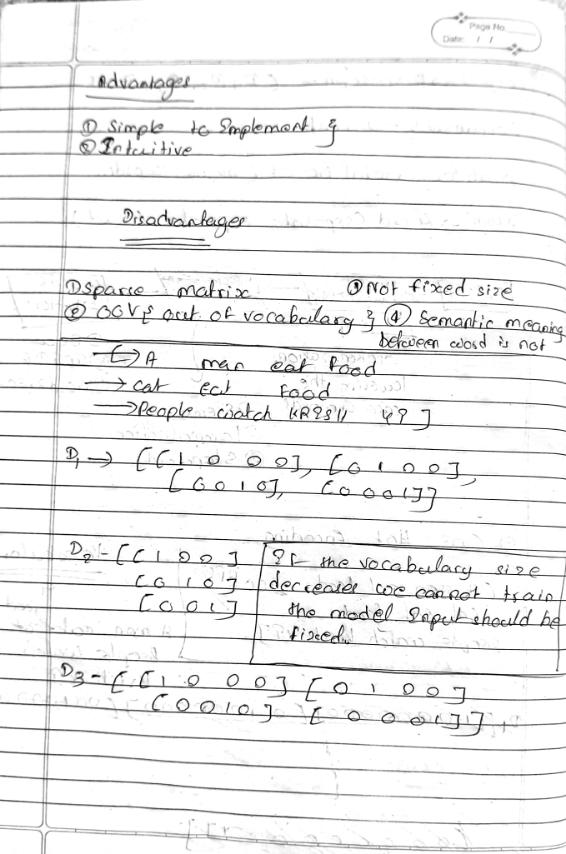 Page No.
Date: / /
Advantages
① Simple to Implement. }
② Intuitive
Disadvantages
① Sparse matrix ③ Not fixed size
② OOV { out of vocabulary } ④ Semantic meaning
between word is not
[→ A man eat food
→ cat eat Food
→ People watch ]
D1 → [[1 0 0 0], [0 1 0 0],
[0 0 1 0], [0 0 0 1]]
D2 - [[1 0 0]
[0 1 0]
[0 0 1]
If the vocabulary size
decreases we cannot train
the model Input should be
fixed.
D3 - [[1 0 0 0] [0 1 0 0]
[0 0 1 0] [0 0 0 1]]